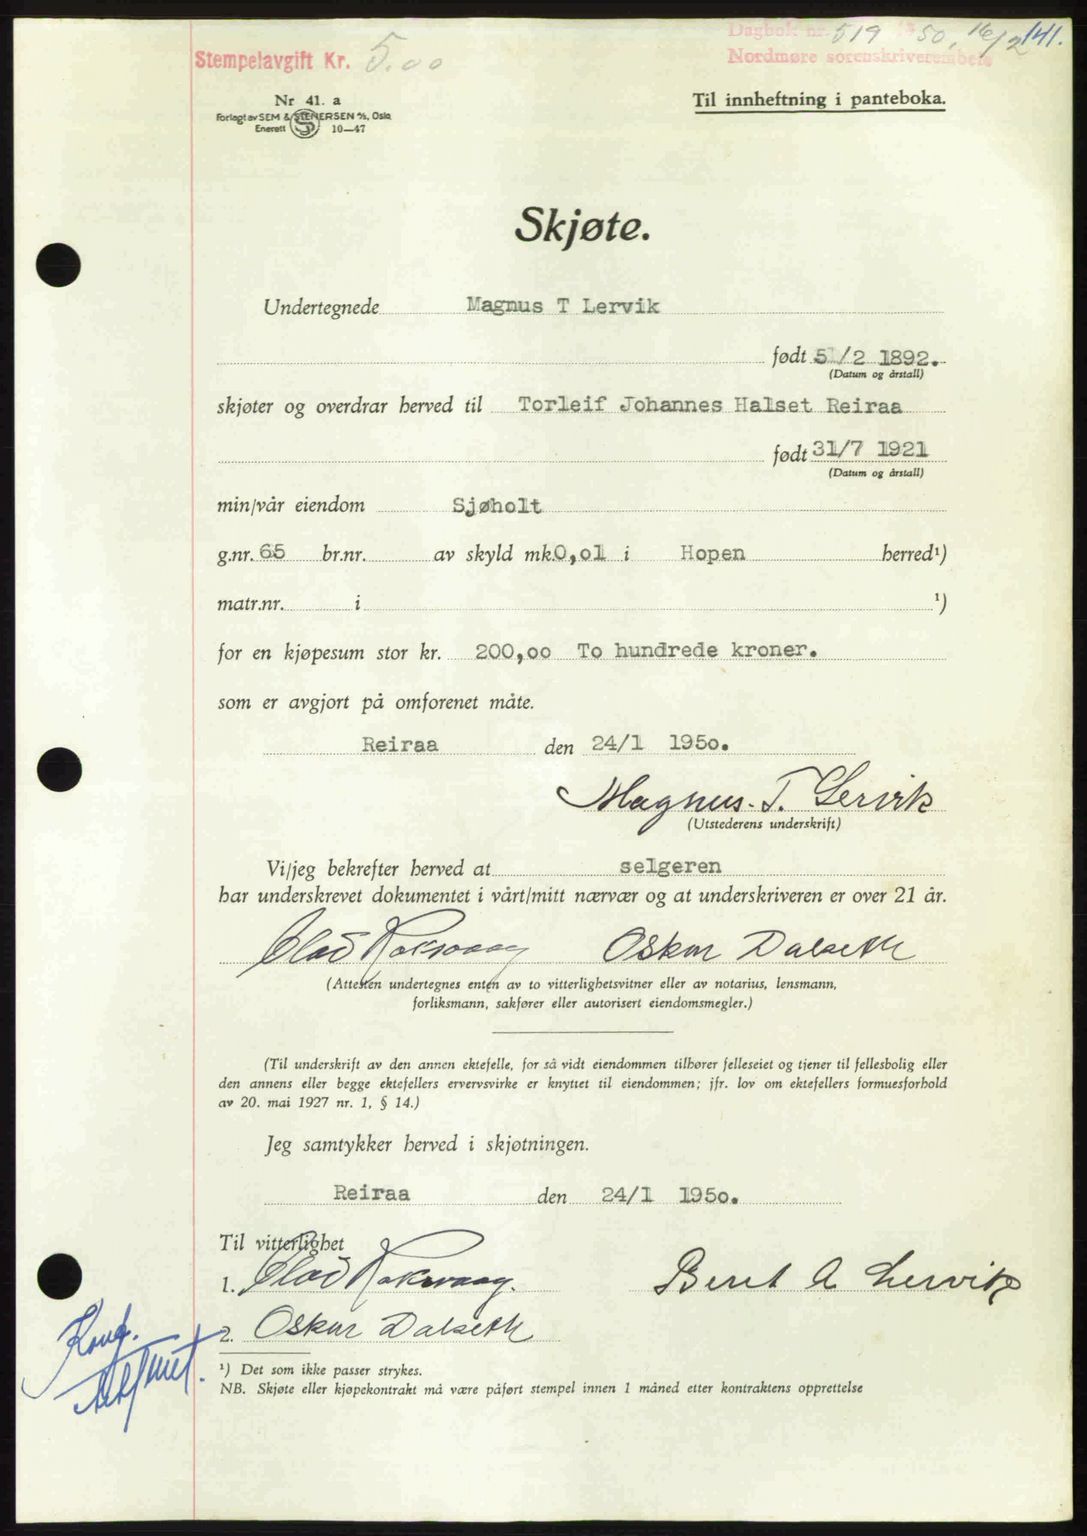 Dagbok nr. 519 1950, 16/2 141.
Stempelavgift Kr. 5.00
Nordmøre sorenskriverembete
Nr 41. a
Forlagt av SEM & STENERSEN A/S, Oslo
Enerett 10—47
Til innheftning i panteboka.
Skjøte.
Undertegnede Magnus T Lervik
født 5 /2 1892.
(Datum og årstall)
skjøter og overdrar herved til Torleif Johannes Halset Reiraa
født 31/7 1921
(Datum og årstall)
min/vår eiendom Sjøholt
g.nr. 65 br.nr. av skyld mk. 0,01 i Hopen herred¹)
matr.nr. i ¹)
for en kjøpesum stor kr. 200,00 To hundrede kroner.
som er avgjort på omforenet måte.
Reiraa den 24/1 1950.
Magnus. T. Lervik
(Utstederens underskrift)
Vi/jeg bekrefter herved at selgeren
har underskrevet dokumentet i vårt/mitt nærvær og at underskriveren er over 21 år.
Olav Roksvaag Oskar Dalseth
(Attesten undertegnes enten av to vitterlighetsvitner eller av notarius, lensmann,
forliksmann, sakfører eller autorisert eiendomsmegler.)
(Til underskrift av den annen ektefelle, for så vidt eiendommen tilhører felleseiet og tjener til fellesbolig eller
den annens eller begge ektefellers ervervsvirke er knyttet til eiendommen; jfr. lov om ektefellers formuesforhold
av 20. mai 1927 nr. 1, § 14.)
Jeg samtykker herved i skjøtningen.
Reiraa den 24/1 1950.
Til vitterlighet
1. Olav Roksvaag. Beret A Lervik
2. Oskar Dalseth
Konf.
¹) Det som ikke passer strykes.
NB. Skjøte eller kjøpekontrakt må være påført stempel innen 1 måned etter kontraktens opprettelse